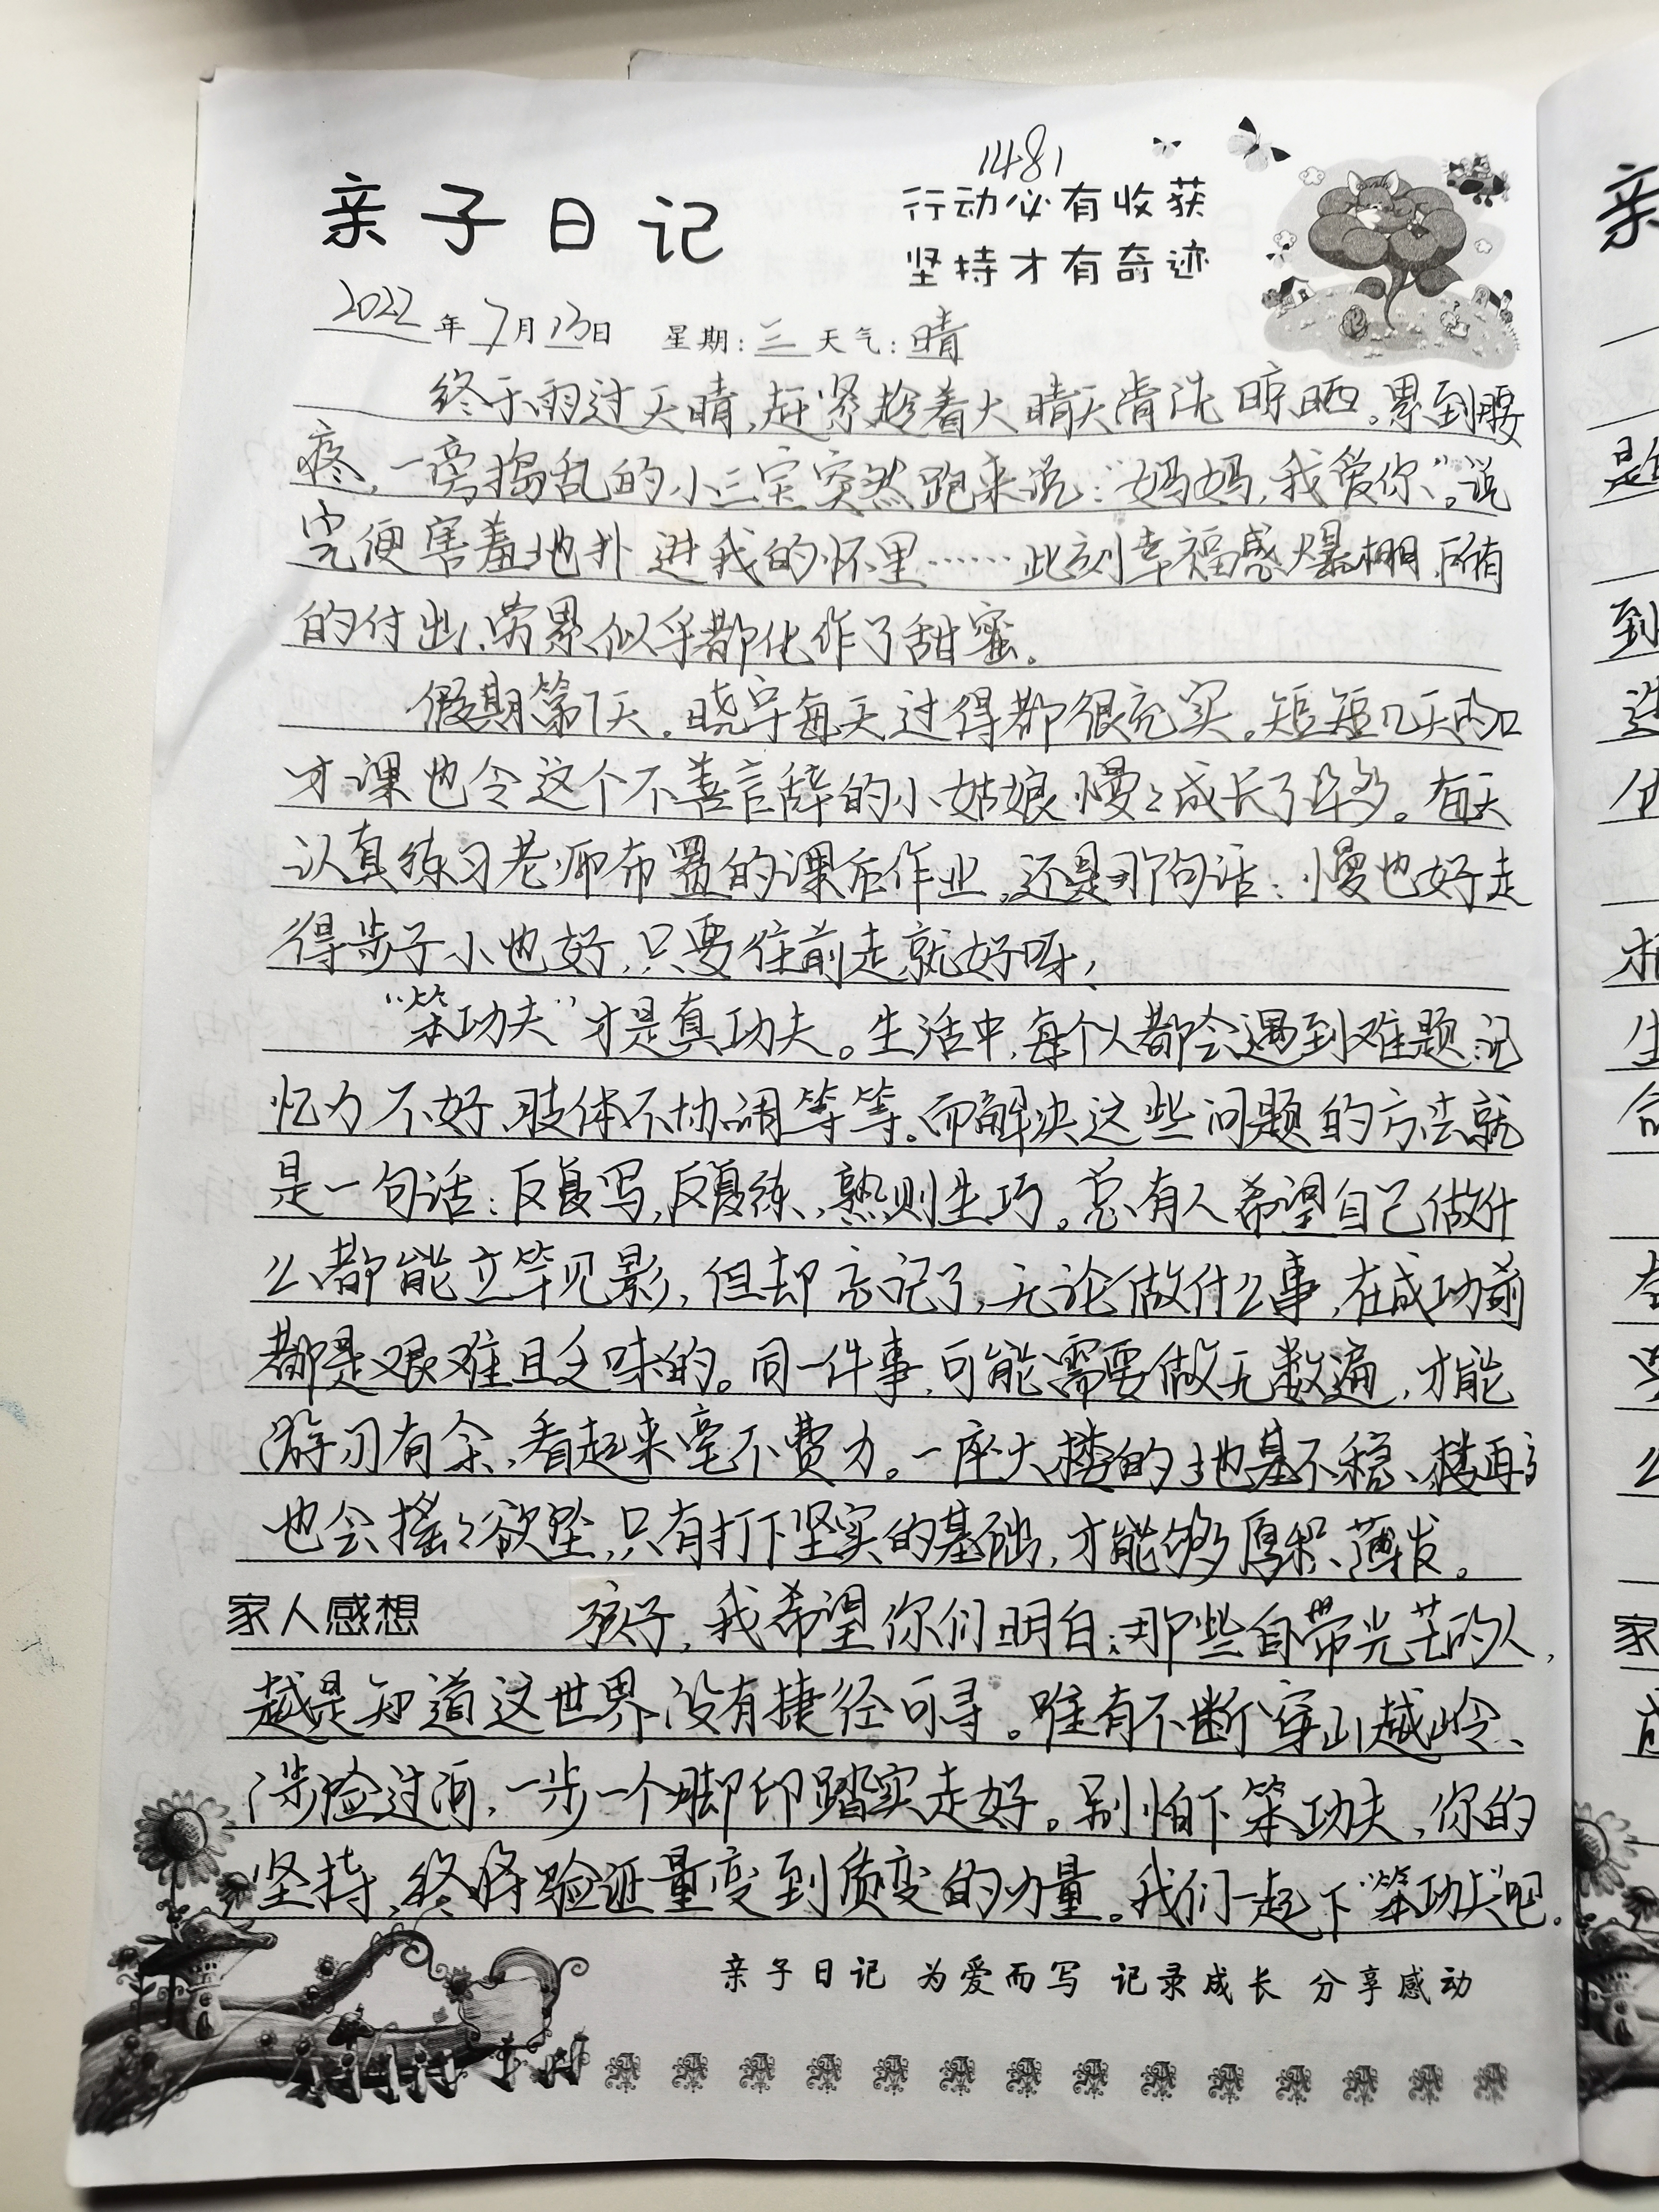 1481
亲子日记
行动必有收获
坚持才有奇迹
2022年7月13日 星期:三 天气:晴
终于雨过天晴,赶紧趁着大晴天清洗晾晒。累到腰
疼,一旁捣乱的小三宝突然跑来说:“妈妈,我爱你”。说
完便害羞地扑进我的怀里……此刻幸福感爆棚,所有
的付出、劳累似乎都化作了甜蜜。
假期第7天。晓宇每天过得都很充实。短短几天的口
才课也令这个不善言辞的小姑娘慢々成长了许多。每天
认真练习老师布置的课后作业,还是那句话:慢也好走
得步子小也好,只要往前走就好呀,
“笨功夫”才是真功夫。生活中,每个人都会遇到难题,记
忆力不好、肢体不协调等等。而解决这些问题的方法就
是一句话:反复写,反复练,熟则生巧。总有人希望自己做什
么都能立竿见影,但却忘记了,无论做什么事,在成功前
都是艰难且乏味的。同一件事,可能需要做无数遍,才能
游刃有余,看起来毫不费力。一座大楼的地基不稳、楼再高
也会摇々欲坠,只有打下坚实的基础,才能够厚积薄发。
家人感想 孩子,我希望你们明白:那些自带光芒的人,
越是知道这世界没有捷径可寻。唯有不断穿山越岭、
涉险过河,一步一个脚印踏实走好。别怕下笨功夫,你的
坚持,终将验证量变到质变的力量。我们一起下“笨功夫”吧.
亲子日记 为爱而写 记录成长 分享感动
亲
是
到
家